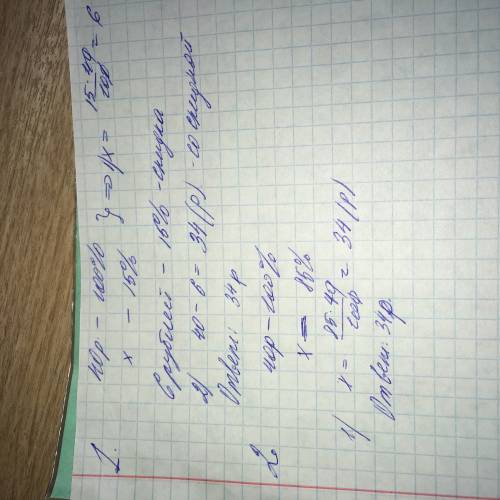 1. 40р – 100% } => 1) x = 15·40/100 = 6
x – 15%
6 рублей – 15% - скидка
2) 40 - 6 = 34 (р) - со скидкой
Ответ: 34р
2 40р – 100%
x – 85%
1) x = 85·40/100 = 34 (р)
Ответ: 34р.